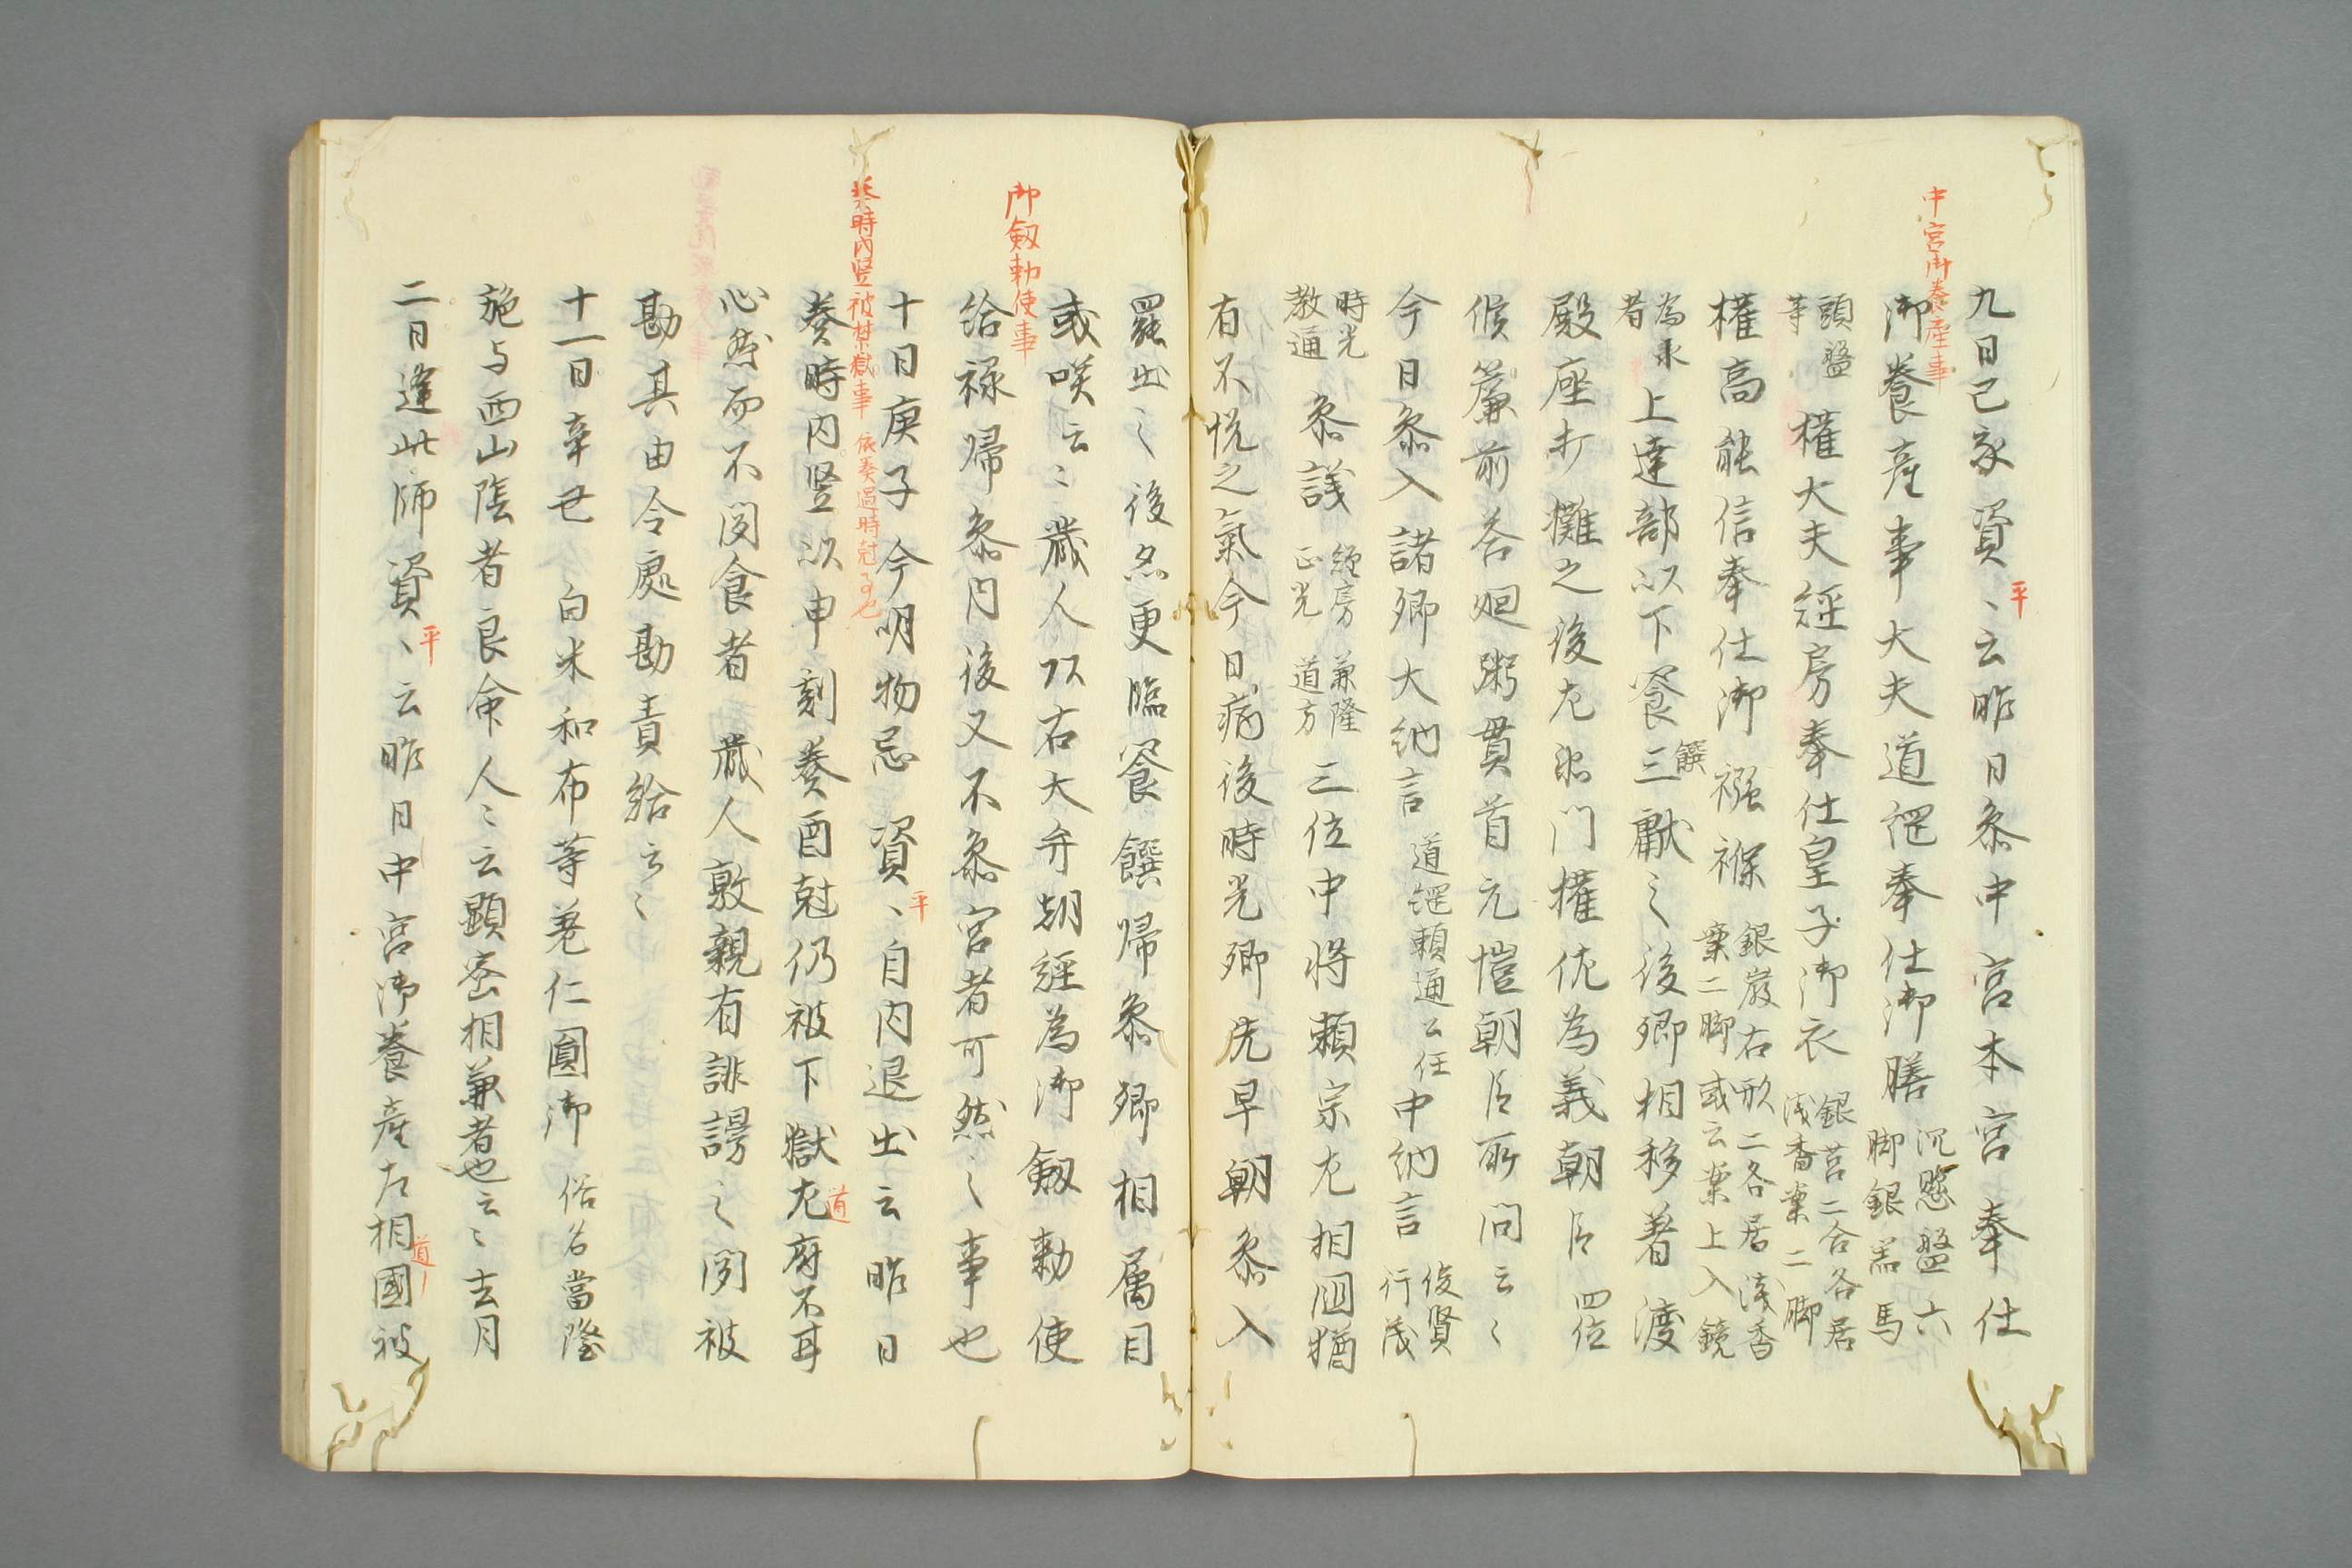 中宮御養産事
九日己亥資〻云昨日参中宮本宮奉仕
平
御養産事大夫道綱奉仕御膳沉懸盤六
脚銀器馬
頭盤
等権大夫経房奉仕皇子御衣銀筥二合各居
浅香案二脚
権高能信奉仕御襁褓銀巖石形二各居浅香
案二脚或云案上入鏡
為永
者上達部以下饗三献〻後卿相移着渡
饌
殿座打攤之後左衛門権佐為義朝臣四位
候簾前答廻粥貫首元愷朝臣所問云〻
今日参入諸卿大納言道綱頼通公任中納言俊賢
行成
時光
教通参議経房兼隆
正光道方三位中将頼宗左相国猶
有不悦之氣今日病後時光卿先早朝参入
罷出之後忽更臨饗饌帰参卿相属目
御釼勅使事
或咲云〻蔵人頭右大弁朝経為御釼勅使
給禄帰参内後又不参宮者可然之事也
十日庚子今明物忌資〻自内退出云昨日
平
奏時内竪被禁獄事依奏過時尅了也
奏時内竪以申刻奏酉尅仍被下獄左府不甘
道
心然而不聞食者蔵人敦親有誹謗之聞被
勘其由令處勘責給云〻
十一日辛丑白米和布等差仁圓御俗名當隆
施与西山陰者良命人〻云顕密相兼者也云〻去月
二日逢此師資〻云昨日中宮御養産左相國被
平
道〡